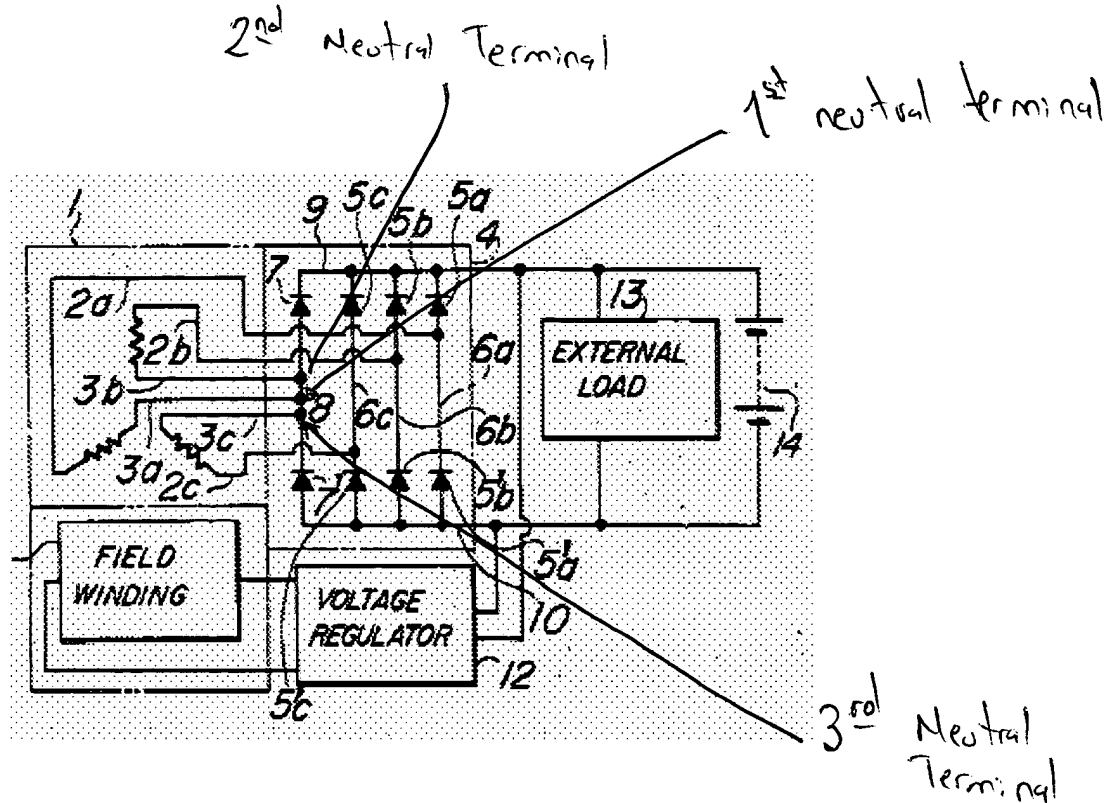 2nd Neutral Terminal
1st neutral terminal
1
2a
2b
3b
3a
3c
2c
9
5c
5b
5a
4
7
8
6c
6a
6b
13
EXTERNAL
LOAD
14
7'
5'b
5'a
10
FIELD
WINDING
VOLTAGE
REGULATOR
12
5'c
3rd Neutral
Terminal